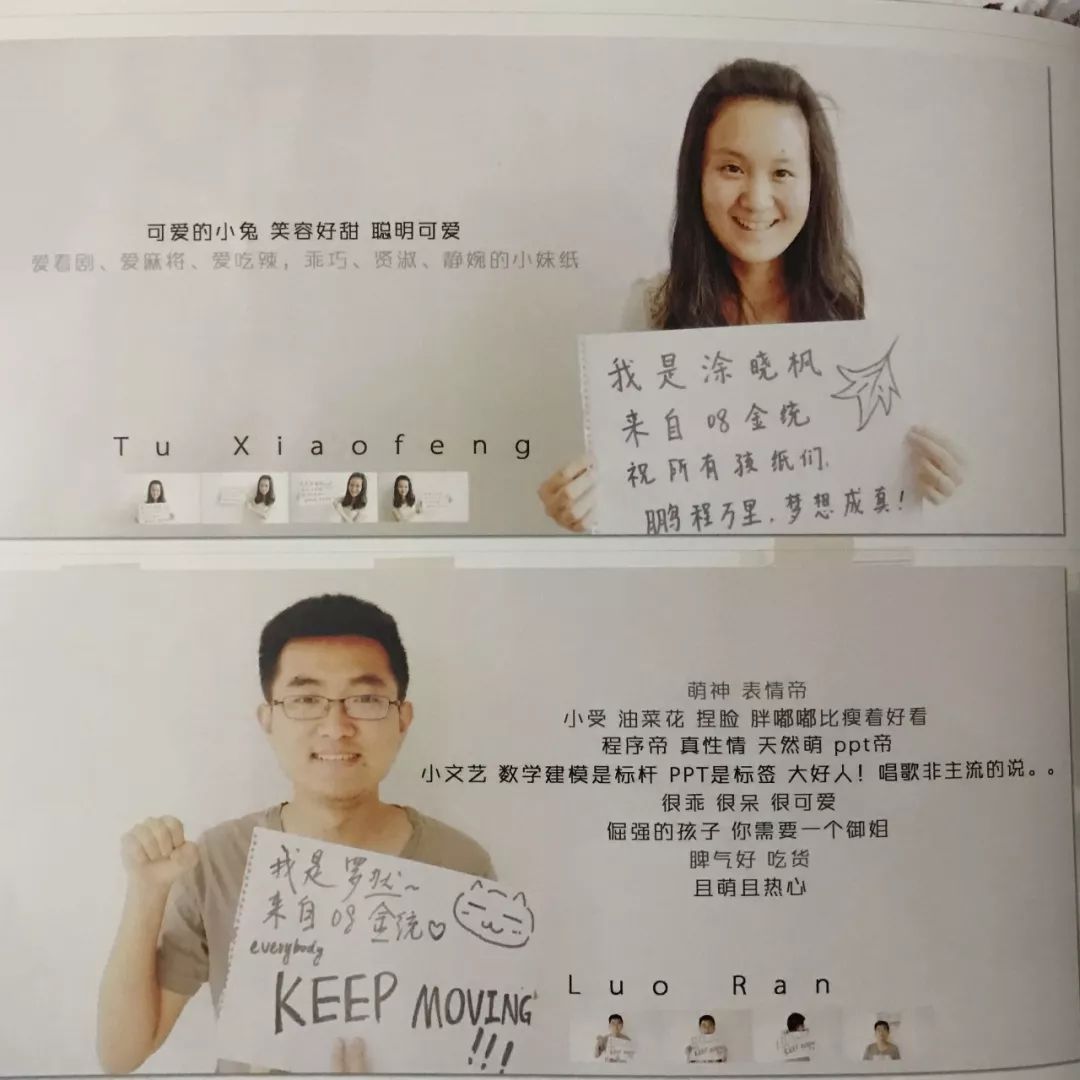 可爱的小兔 笑容好甜 聪明可爱
爱看剧、爱麻将、爱吃辣，乖巧、贤淑、静婉的小妹纸
Tu Xiaofeng
我是涂晓枫
来自08金统
祝所有孩纸们,
鹏程万里,梦想成真!
萌神 表情帝
小受 油菜花 捏脸 胖嘟嘟比瘦着好看
程序帝 真性情 天然萌 ppt帝
小文艺 数学建模是标杆 PPT是标签 大好人！唱歌非主流的说。。
很乖 很呆 很可爱
倔强的孩子 你需要一个御姐
脾气好 吃货
且萌且热心
我是罗然~
来自08金统
everybody
KEEP MOVING
!!!
Luo Ran